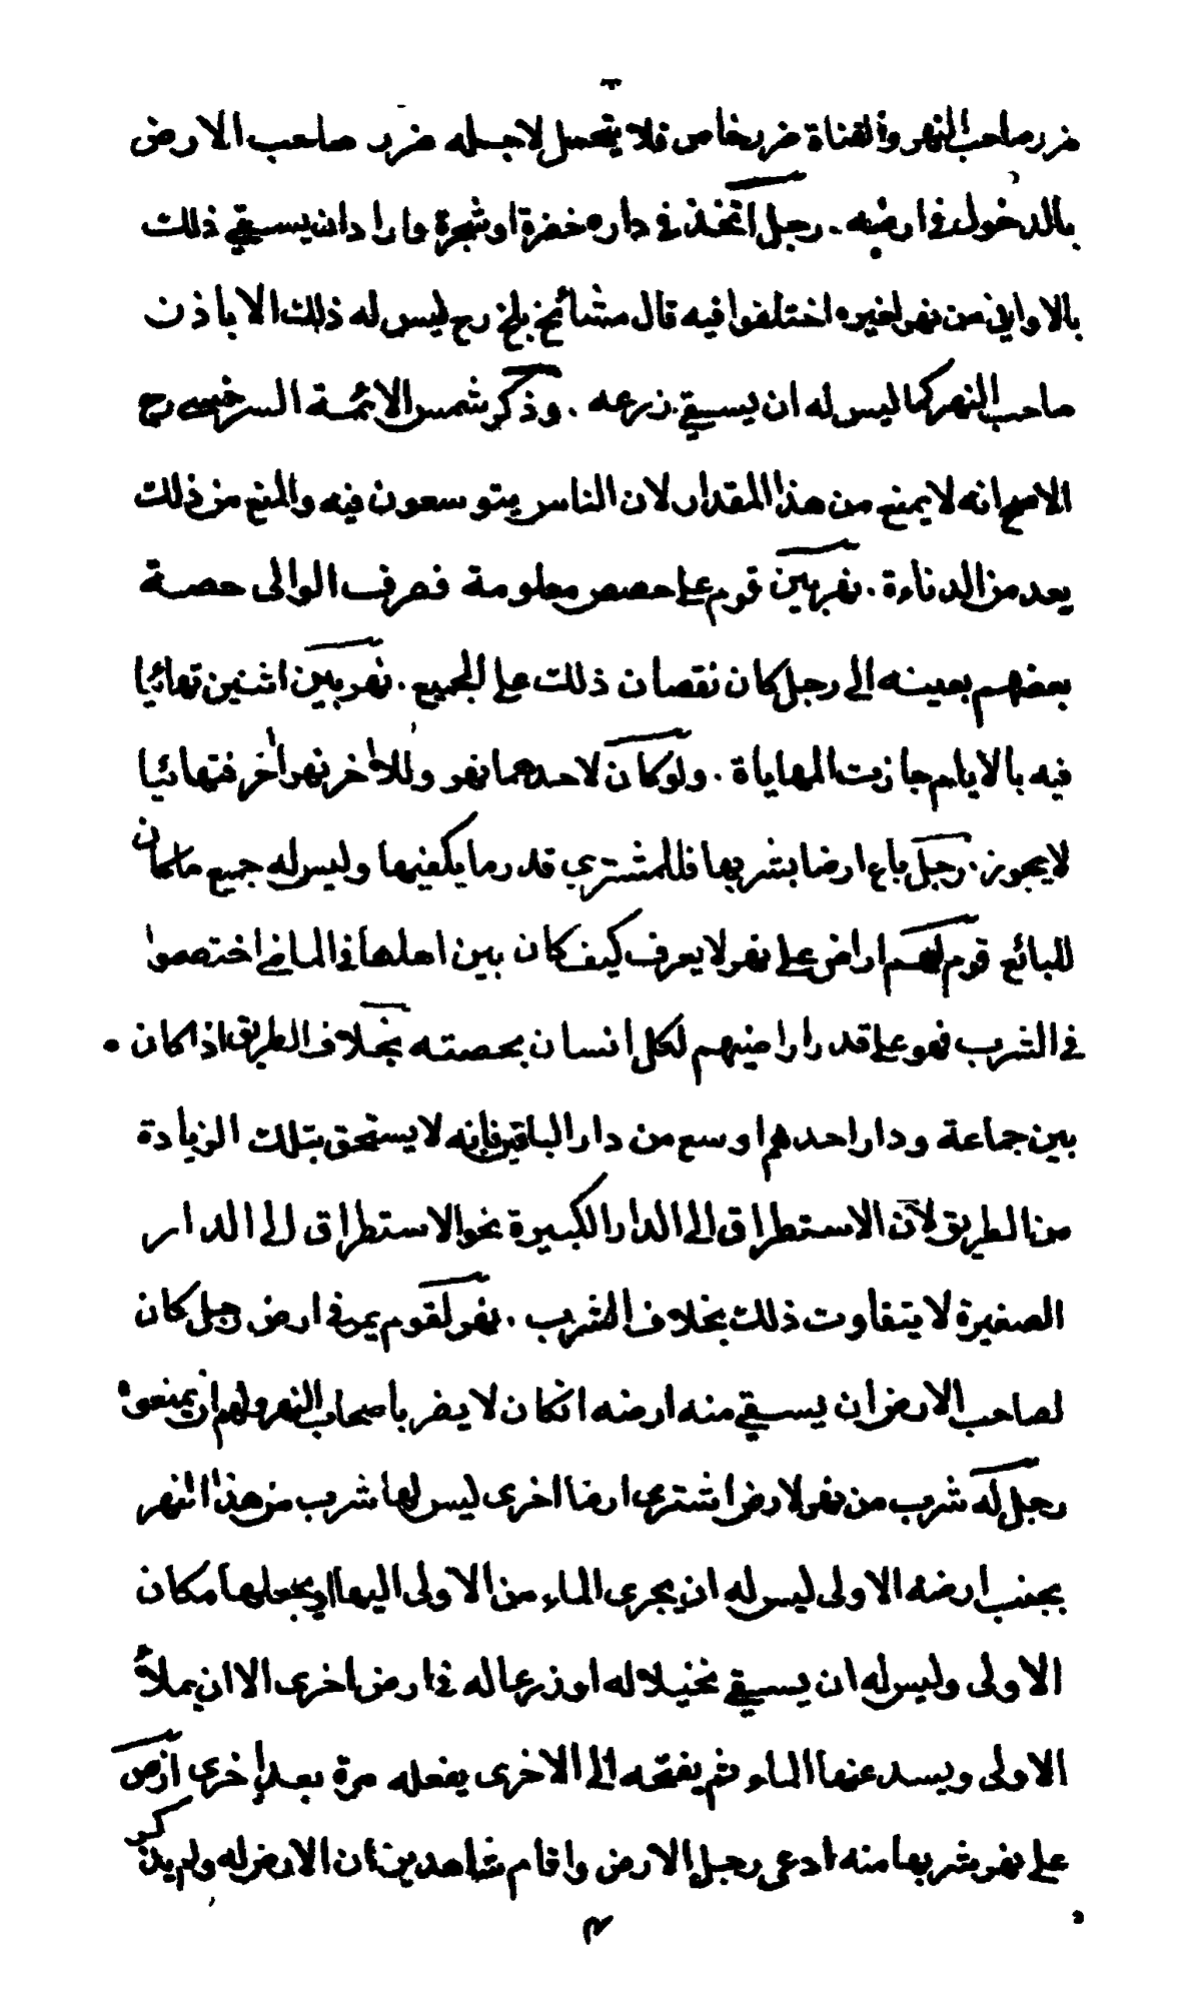 ضرر صاحب النهر والقناة ضرر خاص فلا يتحمل لاجله ضرر صاحب الارض
بالدخول في ارضه . رجل اتخذ في داره خضرة او شجرة وارا دان يسقي ذلك
بالاواني من نهر لغيره اختلفوا فيه قال مشائخ بلخ رح ليس له ذلك الا باذن
صاحب النهر كما ليس له ان يسقي زرعه . وذكر شمس الائمة السرخسي رح
الاصح انه لا يمنع من هذا المقدار لان الناس يتوسعون فيه والمنع من ذلك
يعد من الدناءة . نهر بين قوم على حصص معلومة فصرف الوالى حصة
بعضهم بعينه الى رجل كان نقصان ذلك على الجميع . نهر بين اثنين تهائيا
فيه بالايام جازت المهاياة . ولو كان لاحدهما نهر وللاخر نهر اخر فتهائيا
لا يجوز . رجل باع ارضا بشربها فللمشتري قدر ما يكفيها وليس له جميع ما كان
للبائع قوم لهم اراض على نهر لا يعرف كيف كان بين اهلها في الماضي اختصموا
في الشرب فهو على قدر اراضيهم لكل انسان بحصته بخلاف الطريق اذا كان
بين جماعة ودار احدهم اوسع من دار الباقين فانه لا يستحق بتلك الزيادة
من الطريق لان الاستطراق الى الدار الكبيرة نحو الاستطراق الى الدار
الصغيرة لا يتفاوت ذلك بخلاف الشرب . نهر لقوم يمر في ارض رجل كان
لصاحب الارض ان يسقي منه ارضه انكان لا يضر باصحاب النهر ولهم ان يمنعوه
رجل له شرب من نهر لارض اشترى ارضا اخرى ليس لها شرب من هذا النهر
بجنب ارضه الاولى ليس له ان يجرى الماء من الاولى اليها او يجعلها مكان
الاولى وليس له ان يسقي نخيلا له او زرعا له في ارض اخرى الا ان يملأ
الاولى ويسد عنها الماء ثم يفتحه الى الاخرى يفعله مرة بعد اخرى ارض
على نهر شربها منه ادعى رجل الارض واقام شاهدين ان الارض له ولم يذكر